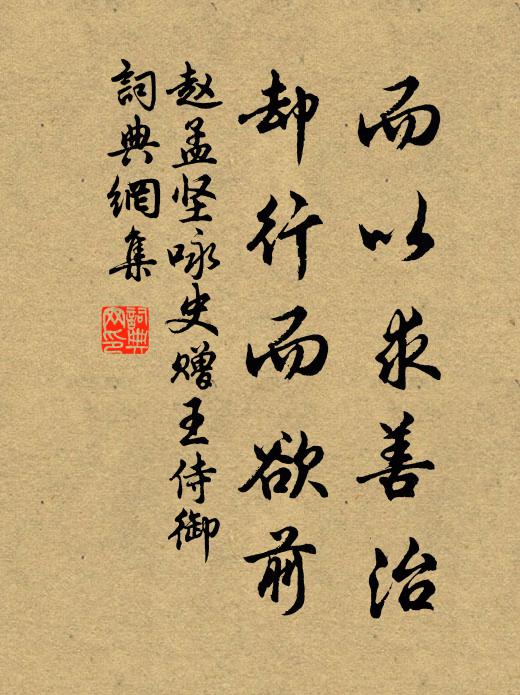 而以求善治
却行而欲前
赵孟坚咏史赠王侍御
詞典網集
詞典网印